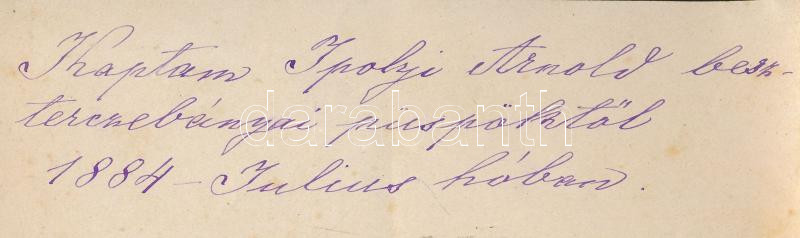 Kaptam Ipolyi Arnold besz-
terczebányai püspöktől
1884 – Julius hóban.
darabanth